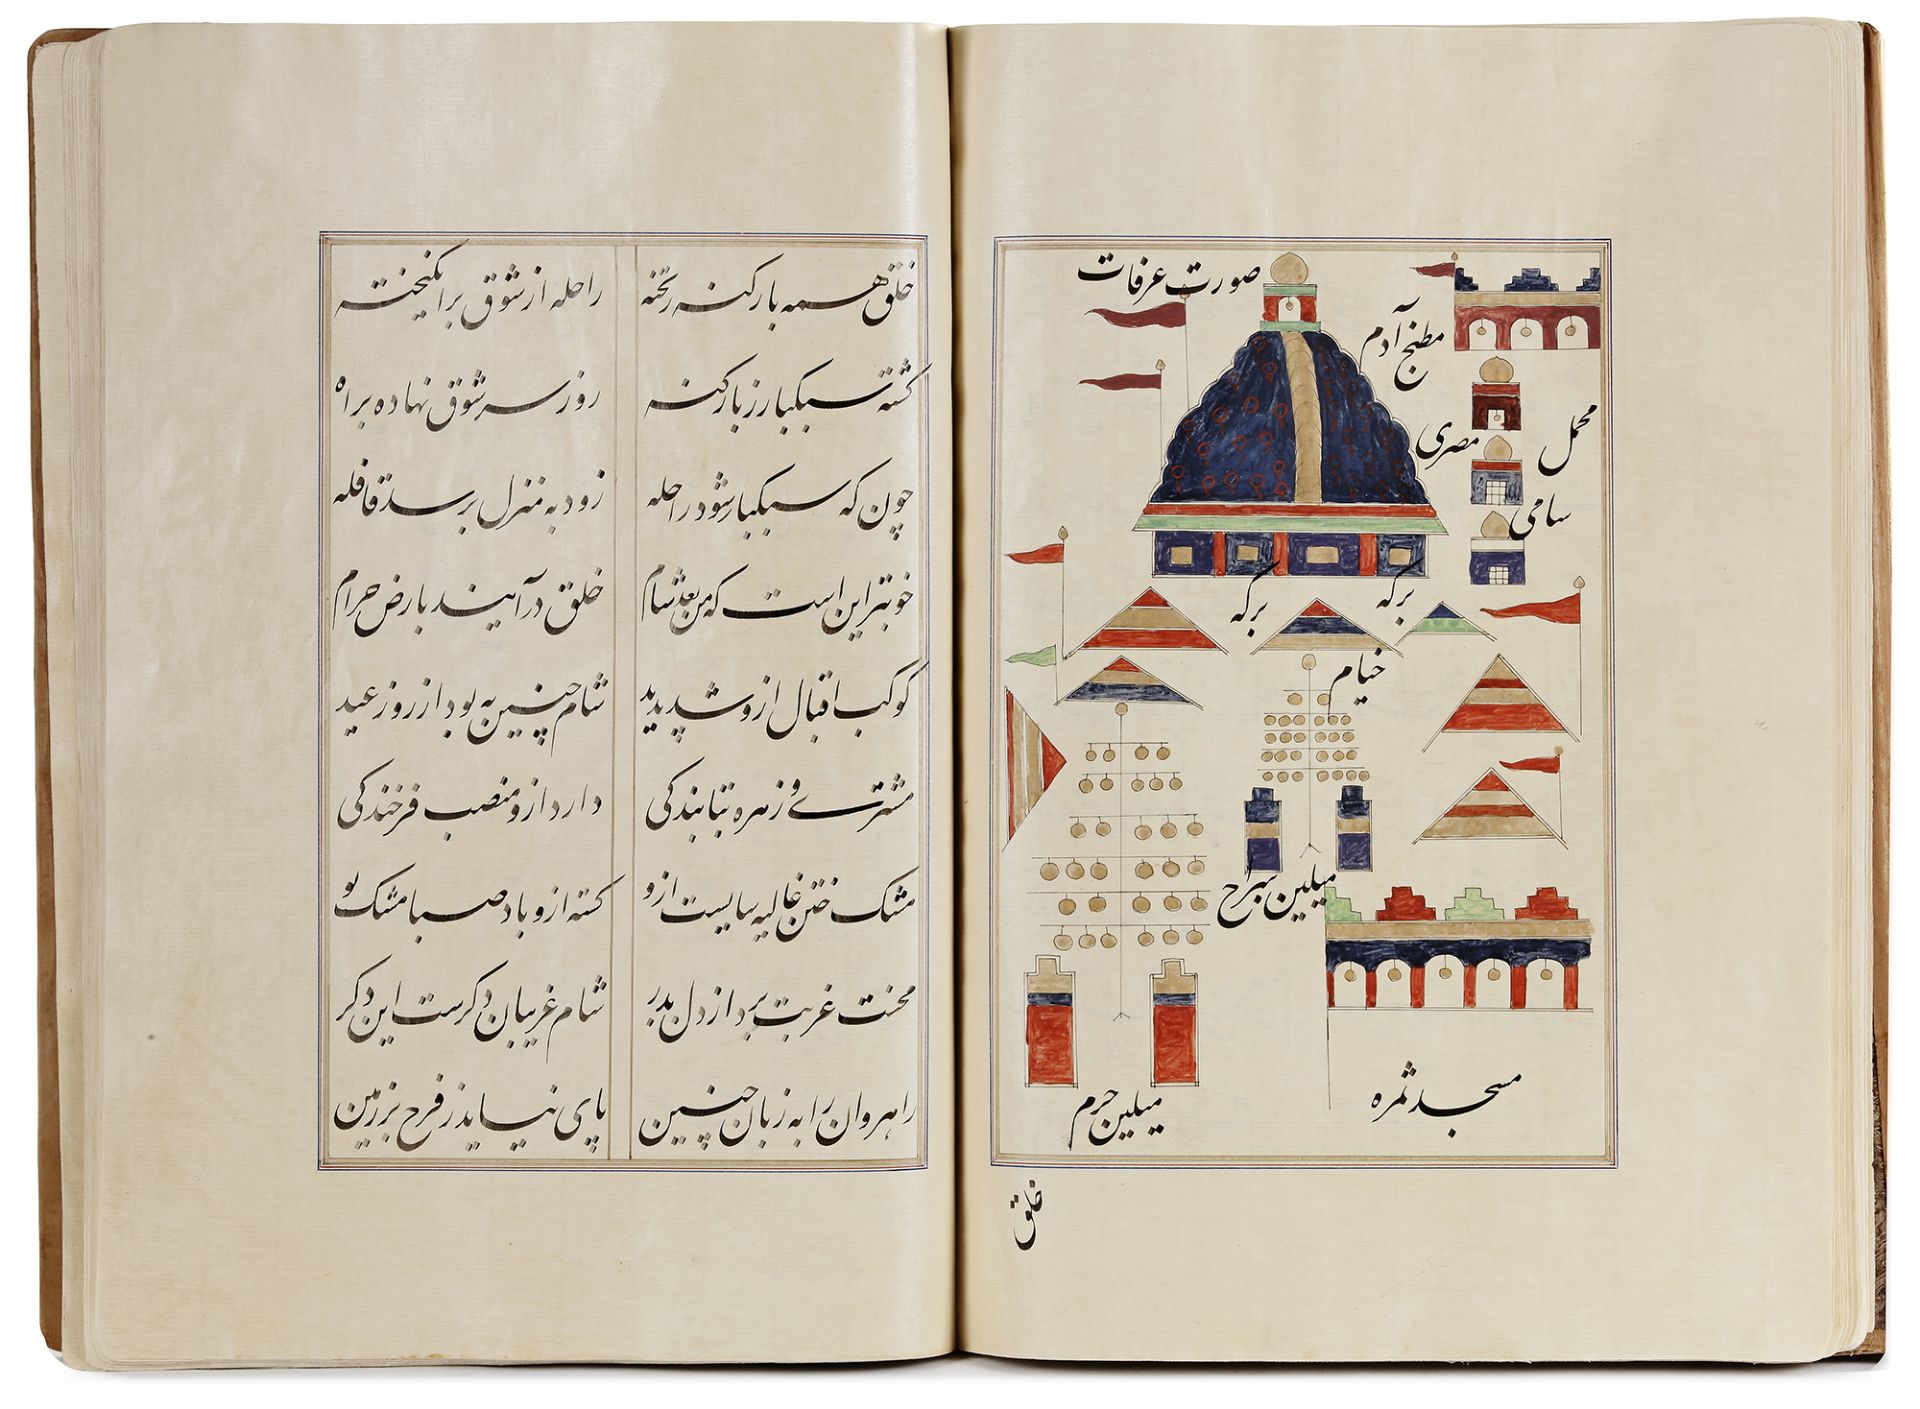 صورت عرفات
مطبخ آدم
محمل
مصری
سامی
برکه
برکه
خیام
میلین سراح
میلین حرم
مسجد ثمره
خلق
خلق همه بار کنه ریخته راحله از شوق برانگیخته
گشته سبکبار ز بار کنه روز سر شوق نهاده براه
چون که سبکبار شود راحله زود به منزل برسد قافله
خوبتر این است که من بعد شام خلق در آیند بارض حرام
کوکب اقبال ازو شد پدید شام چنین به بود از روز عید
مشتری و زهره بتابندکی دارد ازو منصب فرخندکی
مشک ختن غالیه سایست ازو کشته ازو باد صبا مشک بو
محنت غربت برد از دل بدر شام غریبان دکرست این دکر
راهروان را به زبان چنین پای نیاید ز فرح بر زمین